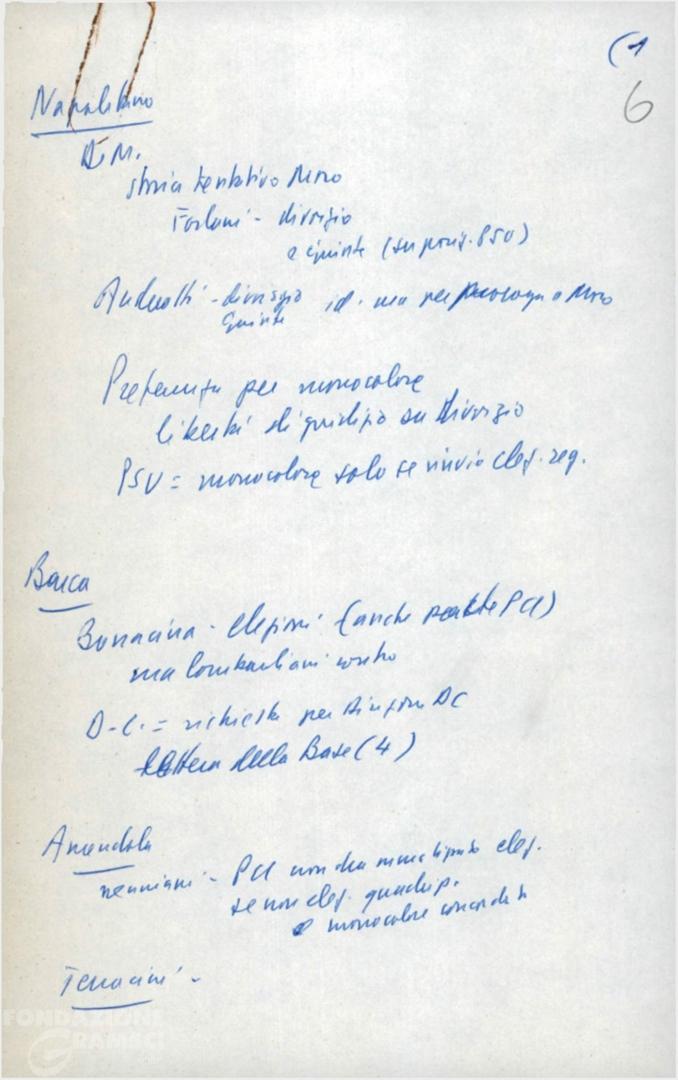 (1
6
Napolitano
D.M.
storia tentativo Moro
Forlani - divorzio
e giunte (su posiz. PSU)
Andreotti - divorzio id. ma per a Moro
giunte
Preferenza per monocolore
libertà di giudizio su divorzio
PSU = monocolore solo se rinvio elez. reg.
Barca
Bonacina - elezioni (anche PCI)
ma lombardiani contro
D.C. = richiesta per Direzione DC
lettera della Base (4)
Amendola
nenniani - PCI non elez.
se non elez. quadrip.
o monocolore concordato
Terracini -
FONDAZIONE
GRAMSCI